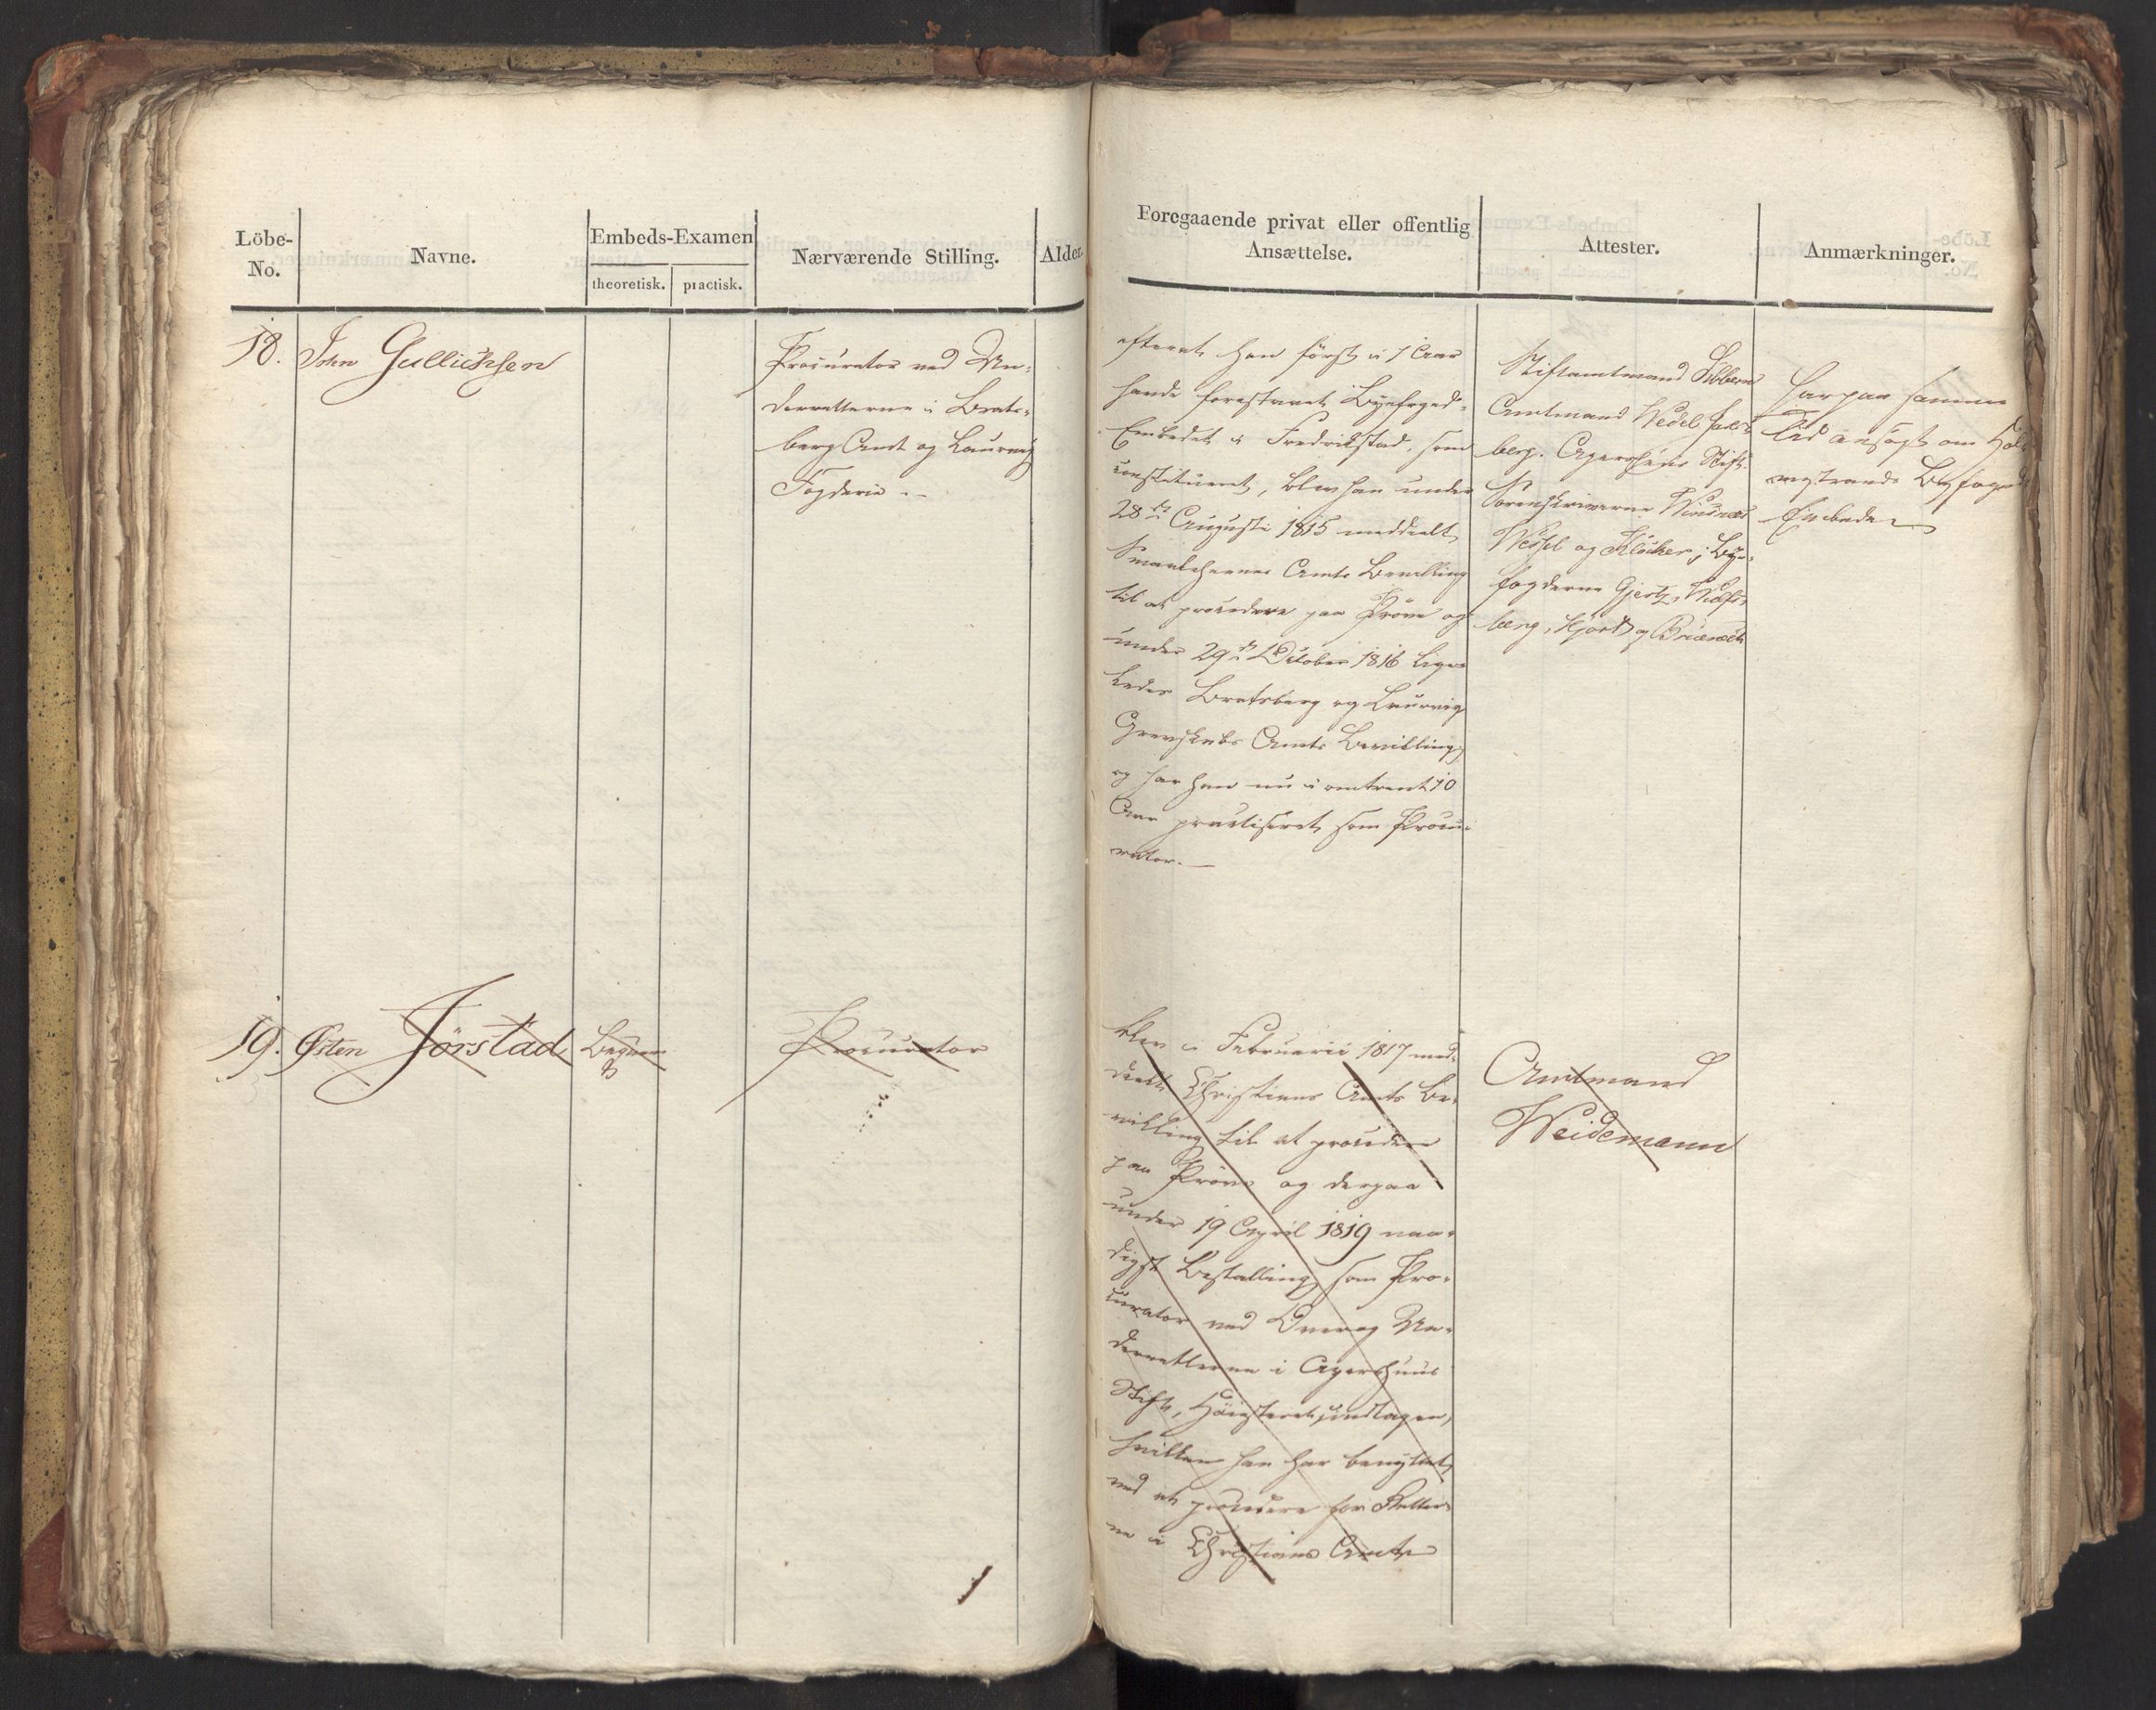 Löbe-
No.
Navne.
Embeds-Examen
theoretisk.
practisk.
Nærværende Stilling.
Alder.
Foregaaende privat eller offentlig
Ansættelse.
Attester.
Anmærkninger.
18.
John Gullichsen
Procurator ved Un-
derretterne i Brats-
berg Amt og Laurvig
Fogderie
efterat han först i 7 Aar
havde forestaaet Byefoged-
Embedet i Fredrikstad, som
constitueret, blev han under
28de Augusti 1815 meddeelt
Smaalehnenes Amts Bevilling
til at procedere paa Pröve og
under 29de October 1816 lige-
ledes Bratsberg og Laurvig
Grevskabs Amts Bevilling,
og har han nu i omtrent 10
Aar practiseret som Procu-
rator.
Stiftamtmand Sibbern
Amtmand Wedel Jarls-
berg. Agershuus Stift.
Sorenskriverne
Wessel og Klöcker; Bye-
fogderne Gjertz, Wulfs-
berg, Hjort og
har paa samme
Tid ansögt om Hol-
mestrands Byfoged
Embede
19.
Østen Jörstad
Procurator
blev i Februarii 1817 med-
deelt Christians Amts Be-
villing til at procedere
paa Pröve og derpaa
under 19 April 1819 naa-
digst Bestalling som Pro-
curator ved Over og Un-
derretterne i Agershuus
Stift, Höiesteret undtagen,
hvilken han har benyttet
ved at procedere for Retter-
ne i Christians Amt
Amtmand
Weidemann